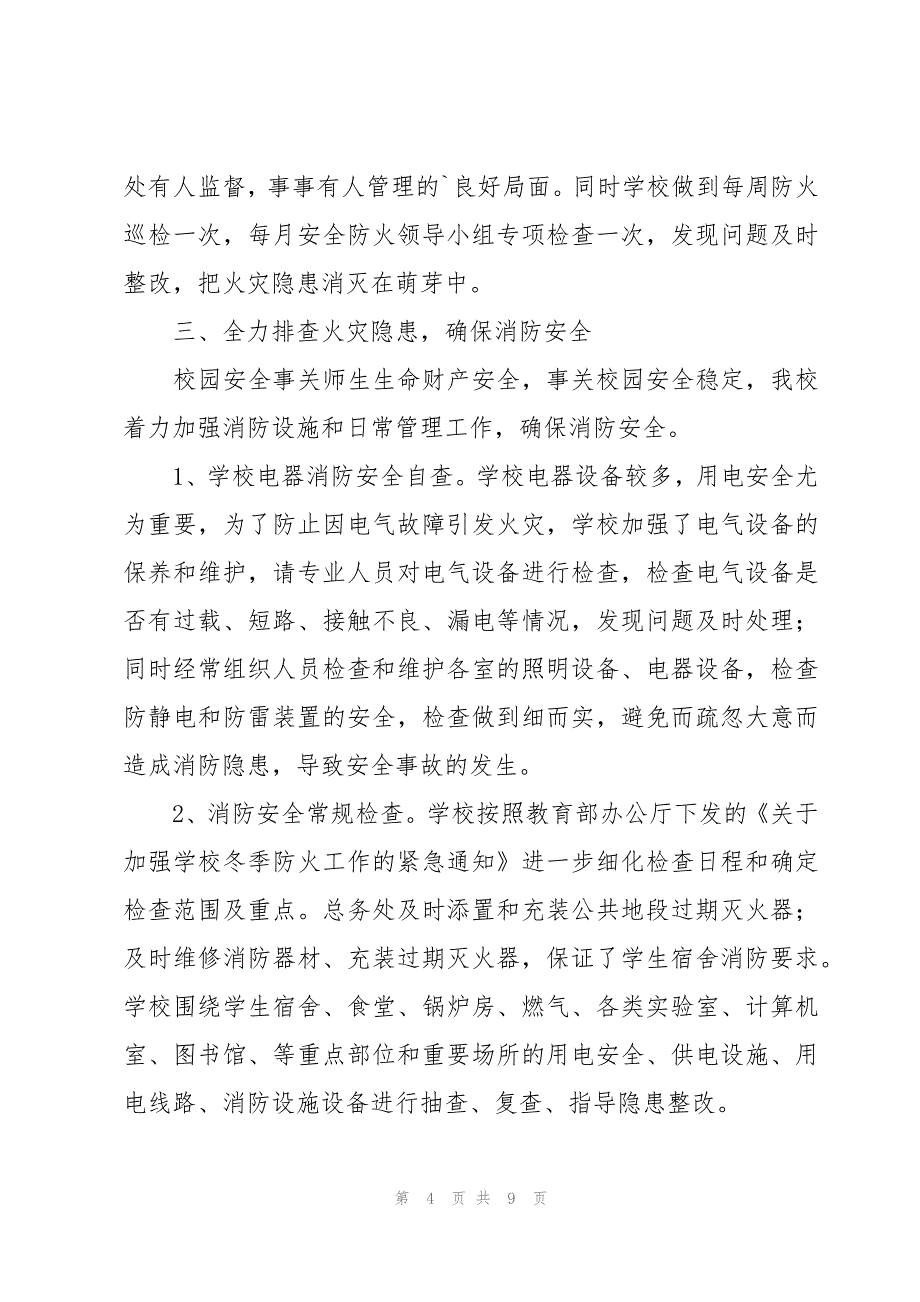 处有人监督，事事有人管理的`良好局面。同时学校做到每周防火
巡检一次，每月安全防火领导小组专项检查一次，发现问题及时
整改，把火灾隐患消灭在萌芽中。
三、全力排查火灾隐患，确保消防安全
校园安全事关师生生命财产安全，事关校园安全稳定，我校
着力加强消防设施和日常管理工作，确保消防安全。
1、学校电器消防安全自查。学校电器设备较多，用电安全尤
为重要，为了防止因电气故障引发火灾，学校加强了电气设备的
保养和维护，请专业人员对电气设备进行检查，检查电气设备是
否有过载、短路、接触不良、漏电等情况，发现问题及时处理；
同时经常组织人员检查和维护各室的照明设备、电器设备，检查
防静电和防雷装置的安全，检查做到细而实，避免而疏忽大意而
造成消防隐患，导致安全事故的发生。
2、消防安全常规检查。学校按照教育部办公厅下发的《关于
加强学校冬季防火工作的紧急通知》进一步细化检查日程和确定
检查范围及重点。总务处及时添置和充装公共地段过期灭火器；
及时维修消防器材、充装过期灭火器，保证了学生宿舍消防要求。
学校围绕学生宿舍、食堂、锅炉房、燃气、各类实验室、计算机
室、图书馆、等重点部位和重要场所的用电安全、供电设施、用
电线路、消防设施设备进行抽查、复查、指导隐患整改。
第 4 页 共 9 页